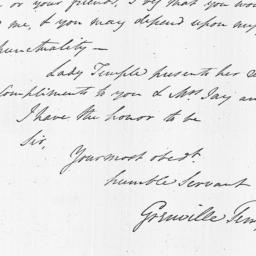 or your friends, I beg that you wou
me, & you may depend upon my
punctuality —
Lady Temple presents her
Compliments to you & Mrs Jay an
I have the honor to be
Sir,
Your most obedt.
humble Servant
Grenville Tem